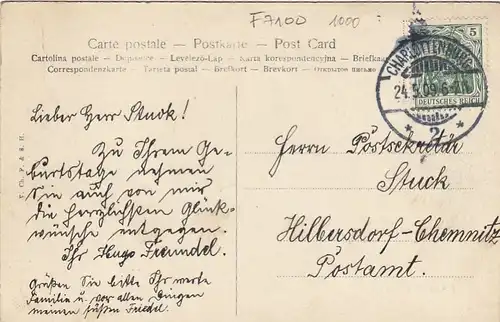 F7100 1000
Carte postale – Postkarte – Post Card
Cartolina postale – Dopisnice – Levelező-Lap – Karta korespondencyjna – Briefkaart
Correspondenzkarte – Tarjeta postal – Brefkort – Brevkort – Открытое письмо
5
DEUTSCHES REICH
CHARLOTTENBURG
24.5.09.6-7
* 2 *
Lieber Herr Stuck!
Zu Ihrem Ge-
burtstage nehmen
Sie auch von mir
die herzlichsten Glück-
wünsche entgegen.
Ihr Hugo Freundel.
Grüßen Sie bitte Ihr werte
Familie u. vor allen Dingen
meinen süßen Friedel.
Herrn Postsekretär
Stuck
Hilbersdorf-Chemnitz
Postamt.